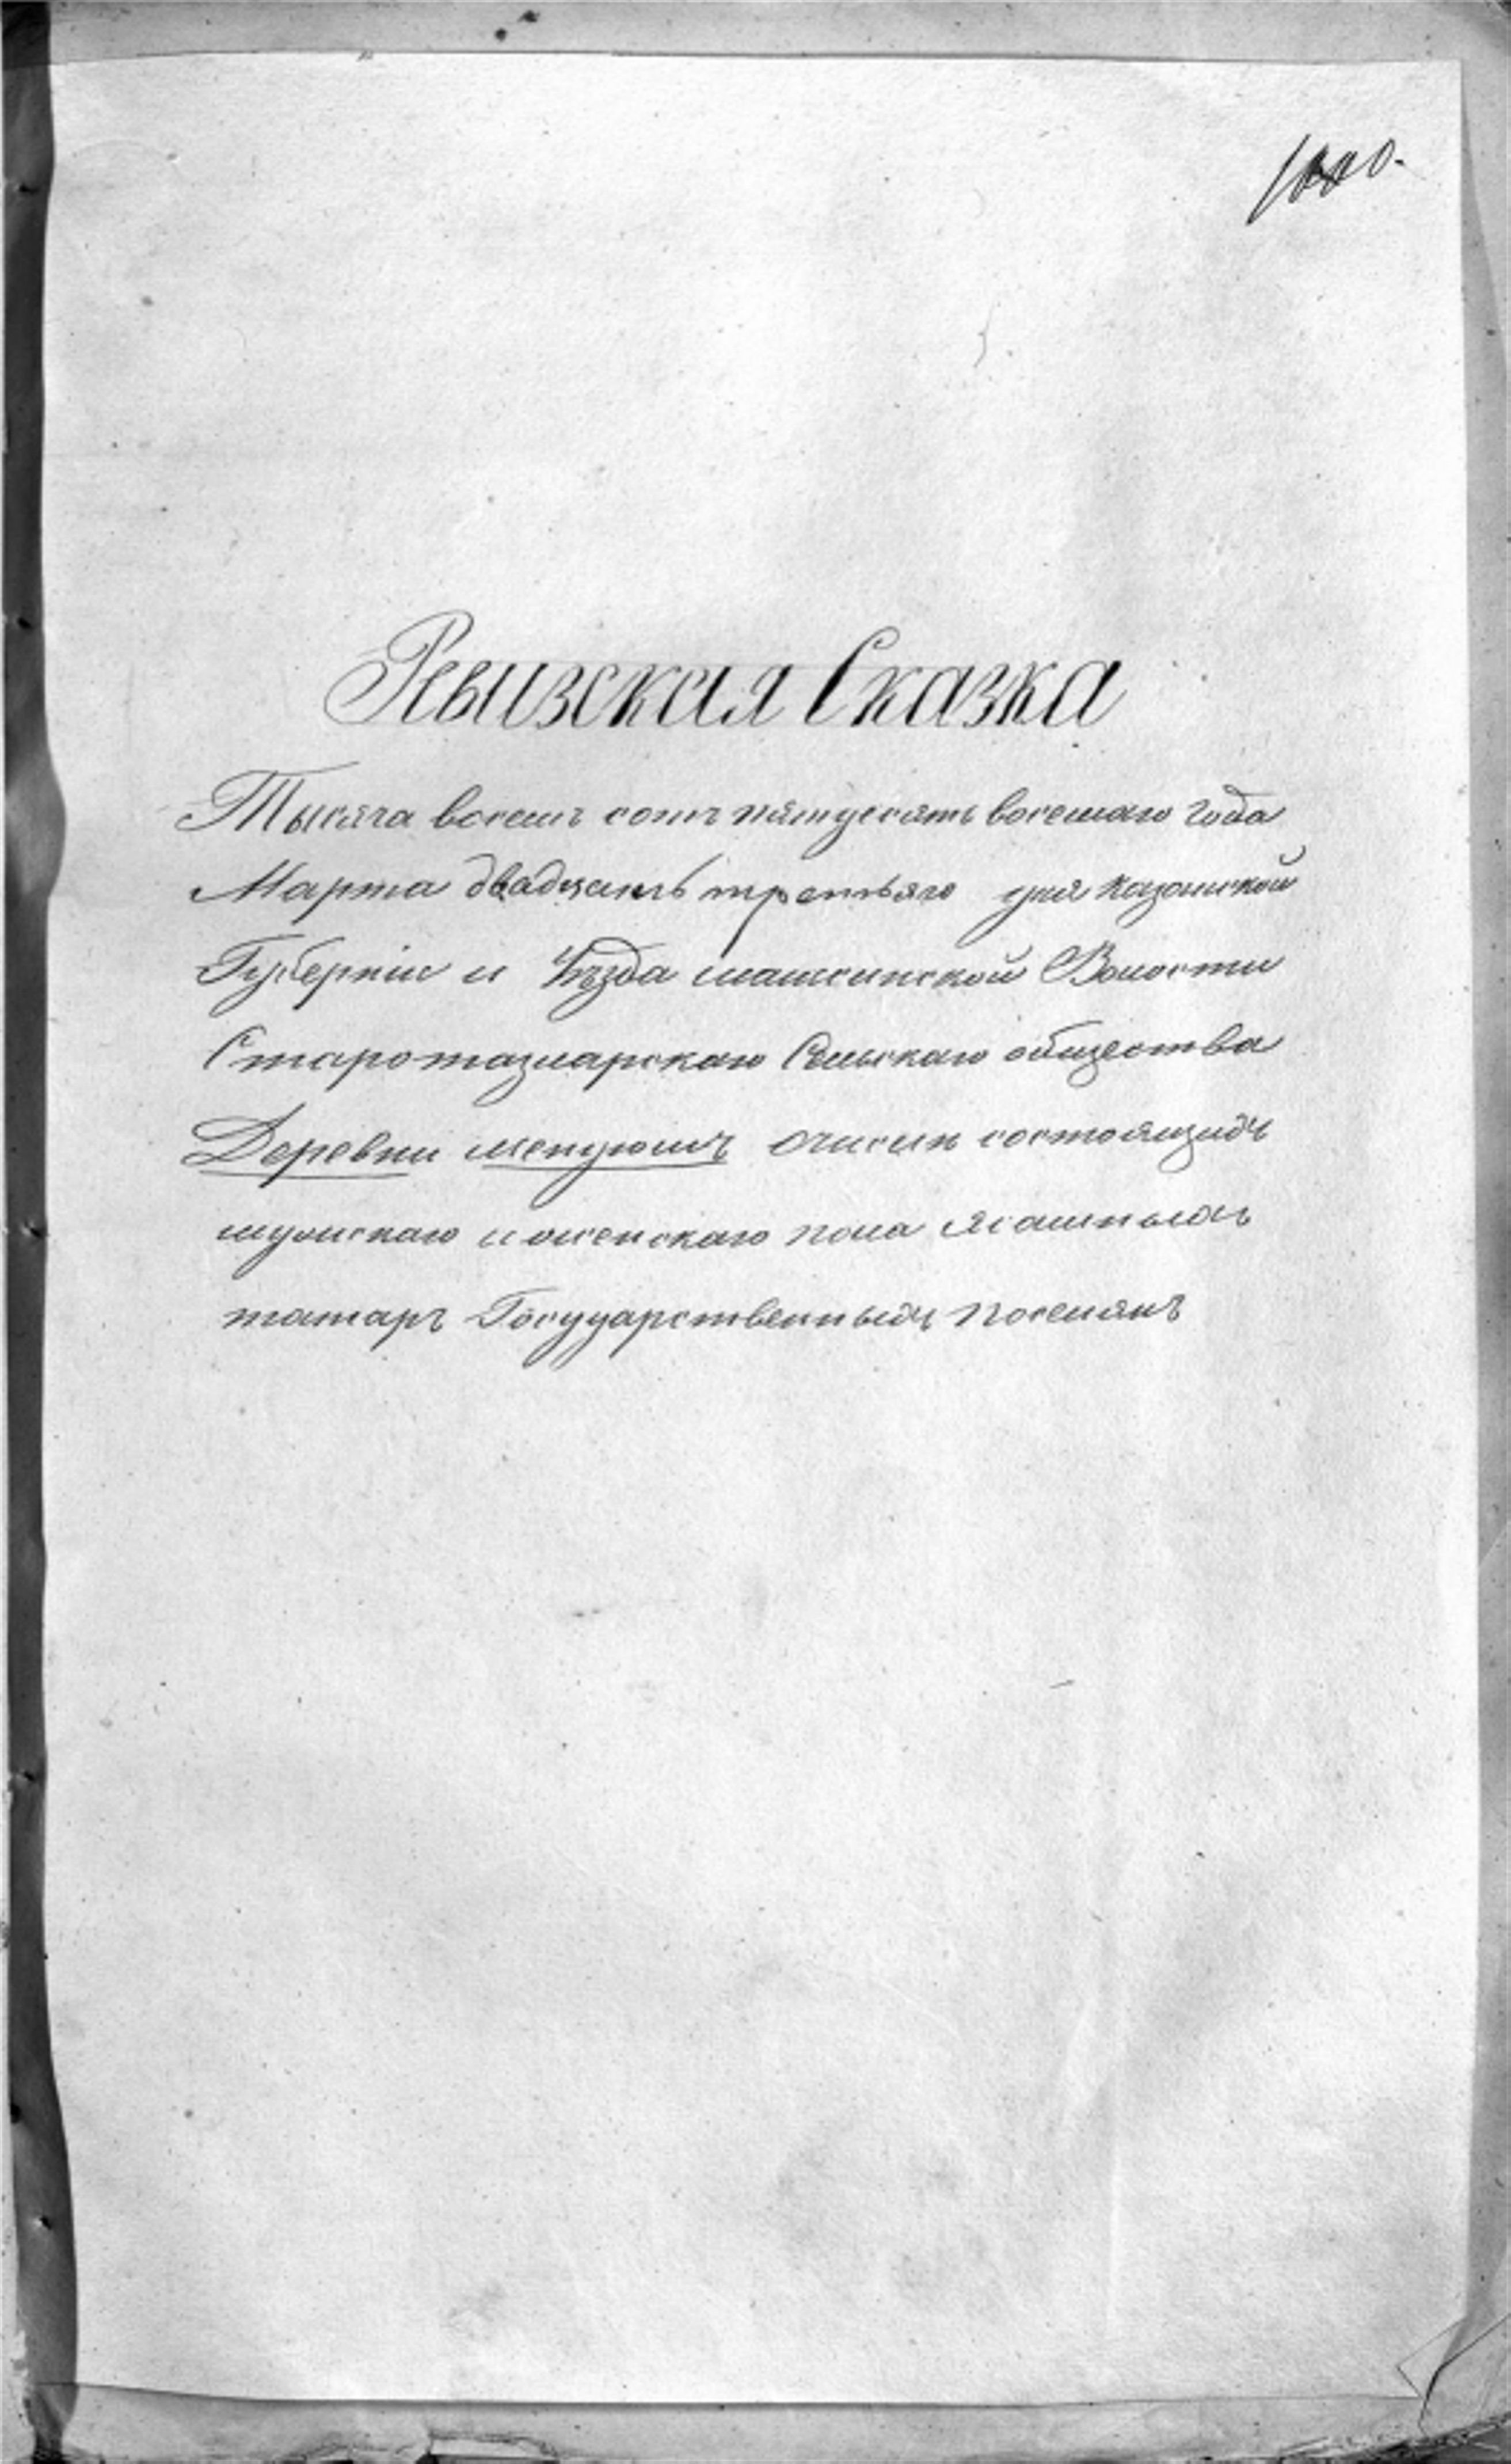 Ревизская Сказка
Тысяча восемь сотъ пятдесятъ восемаго года
Марта двадцать третьяго дня казанской
Губерніи и Уѣзда машкинской Волости
Старотазларскаго Сельскаго общества
Деревни мендюшъ о числѣ состоящихъ
мужскаго и женскаго пола Ясашныхъ
татаръ Государственныхъ поселянъ